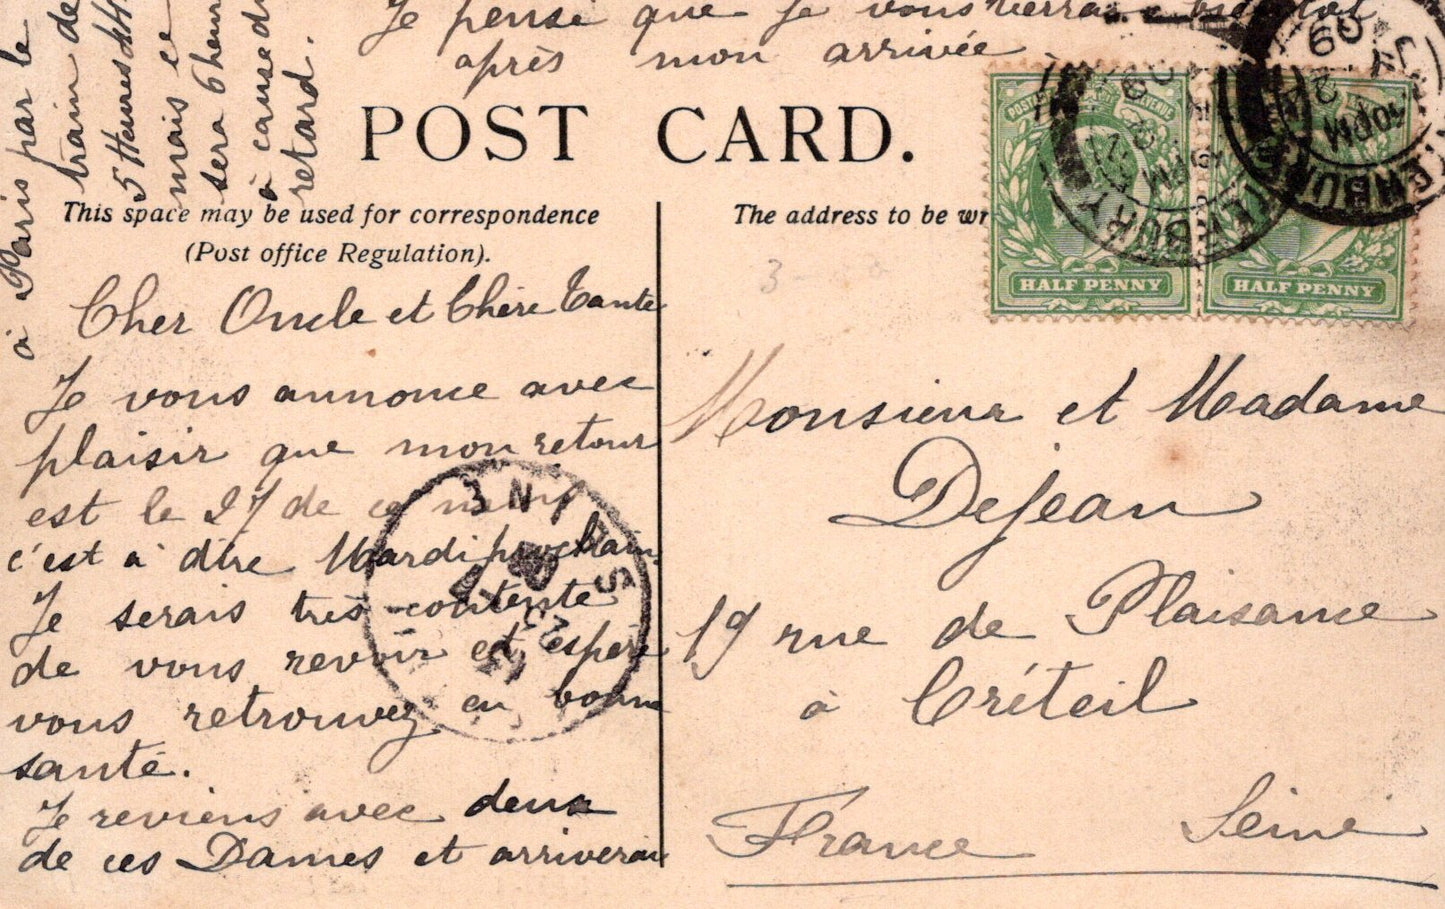 Je pense que je vous verrai
après mon arrivée
à Paris par le
train de
5 Heures
mais ce
sera 6 heur
à cause d
retard.
POST CARD.
This space may be used for correspondence
(Post office Regulation).
The address to be wr
HALF PENNY
HALF PENNY
Cher Oncle et Chère Tante
Je vous annonce avec
plaisir que mon retour
est le 27 de ce mois
c'est à dire Mardi prochain
Je serais très contente
de vous revoir et espère
vous retrouvez en bonne
santé.
Je reviens avec deux
de ces Dames et arriverai
Monsieur et Madame
Dejean
19 rue de Plaisance
à Créteil
Seine
France